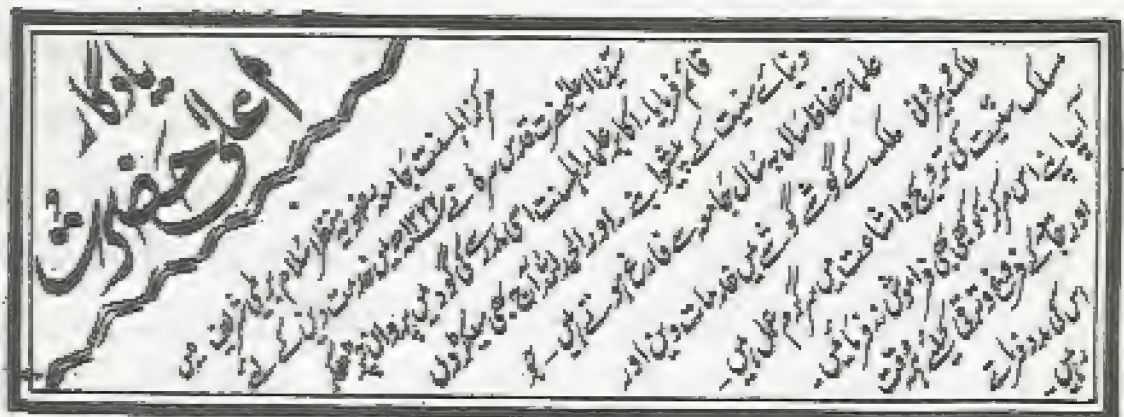 یادگار
اعلیٰ حضرت
مرکز اہلسنت جامعہ رضویہ منظر اسلام بریلی شریف جس
سیدنا اعلیٰحضرت قدس سرہٗ نے ۱۳۲۲ھ میں خدمت دین کے لئے
قائم فرمایا۔ اکابر علماء اہلسنت اسی مدرسے کی گود میں پروان چڑھ کر
دنیائے سنیت کے پیشوا بنے۔ اور الحمد للہ آج بھی سیکڑوں
علماء حفاظ سال بہ سال جامعہ سے فارغ ہوتے ہیں۔ جو
ملک بیرون ملک کے گوشے گوشے میں خدمات دین اور
مسلک سنیت کی ترویج و اشاعت میں سرگرم عمل ہیں۔
آپ اپنے اس مرکز کو کبھی بھی فراموش نہ فرمائیں۔
اور جامعہ کے فروغ و ترقی کیلئے ہر وقت
اس کی مدد فرماتے
رہیں۔